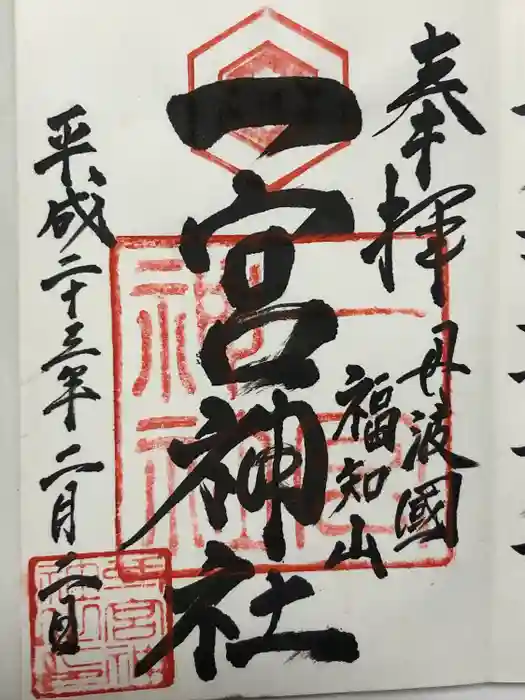 奉拝
丹波國
福知山
一宮神社
平成二十三年二月六日
一宮
神社